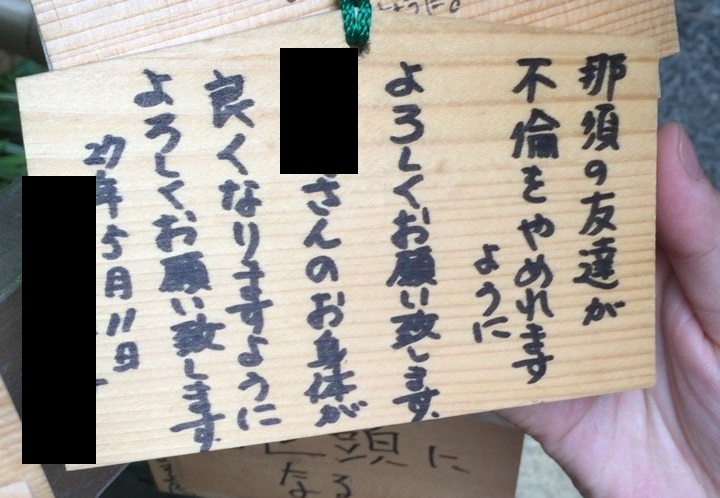 那須の友達が
不倫をやめれます
ように
よろしくお願い致します
さんのお身体が
良くなりますように
よろしくお願い致します
27年5月11日
頭に
なる
ように